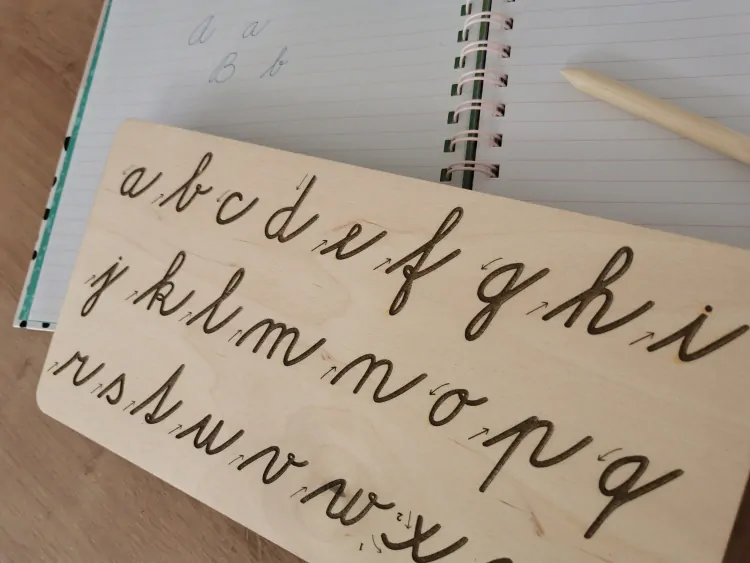 a a
B b
a b c d e f g h i
j k l m n o p q
r s t u v w x